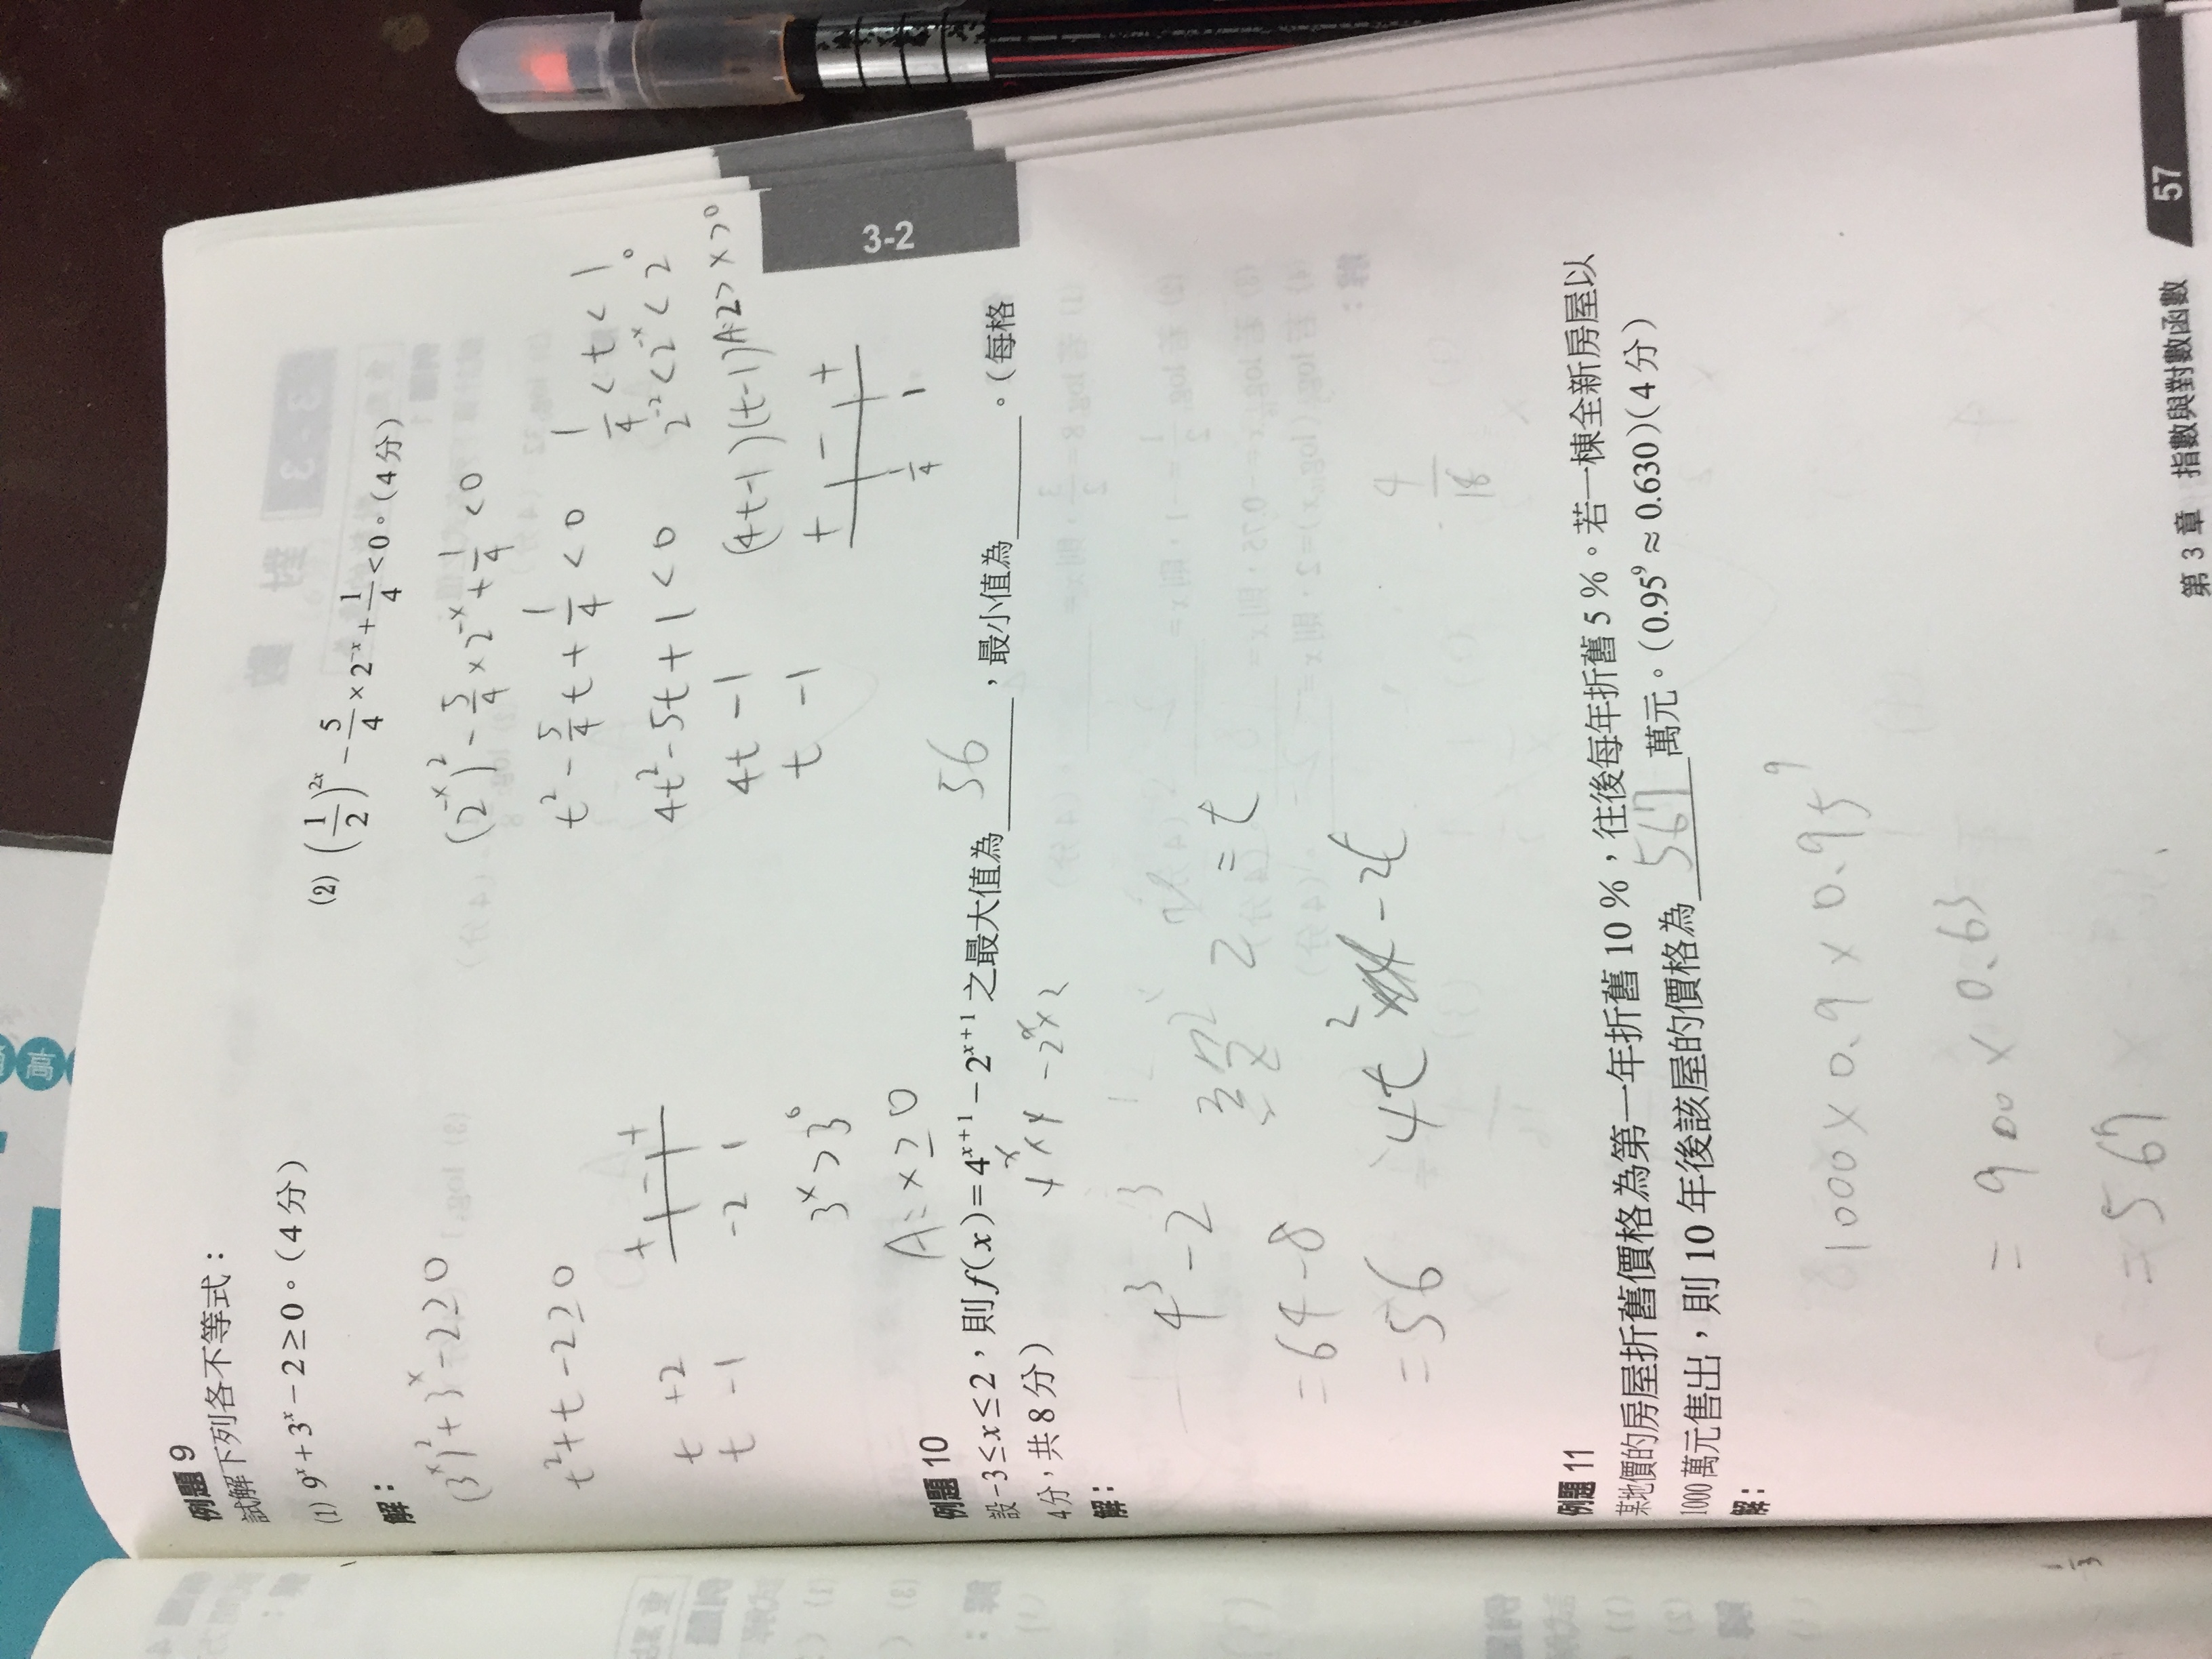 例題 9
試解下列各不等式：
(1) 9ˣ+3ˣ−2≥0。(4分)
(2) (1/2)²ˣ − 5/4 × 2⁻ˣ + 1/4 < 0。(4分)
解：
(3ˣ)²+3ˣ−2≥0
t²+t−2≥0
t +2
t −1
+ − +
−2 1
3ˣ>3⁰
A: x≥0
(2⁻ˣ)² − 5/4 × 2⁻ˣ + 1/4 < 0
t² − 5/4 t + 1/4 < 0
4t²−5t+1<0
4t −1
t −1
1/4 < t < 1
2⁻² < 2⁻ˣ < 2⁰
(4t−1)(t−1) A: 2>x>0
+ − +
1/4 1
3-2
例題 10
設 −3≤x≤2，則 f(x)=4ˣ⁺¹−2ˣ⁺¹ 之最大值為 56 ，最小值為 。(每格
4分，共8分)
解：
4ˣ×4 −2ˣ×2
4³−2³
=64−8
=56
2ˣ=t
4t² −2t
例題 11
某地價的房屋折舊價格為第一年折舊 10 %，往後每年折舊 5 %。若一棟全新房屋以
1000 萬元售出，則 10 年後該屋的價格為 567 萬元。(0.95⁹≈0.630)(4分)
解：
1000×0.9×0.95⁹
=900×0.63
=567
第 3 章 指數與對數函數 57